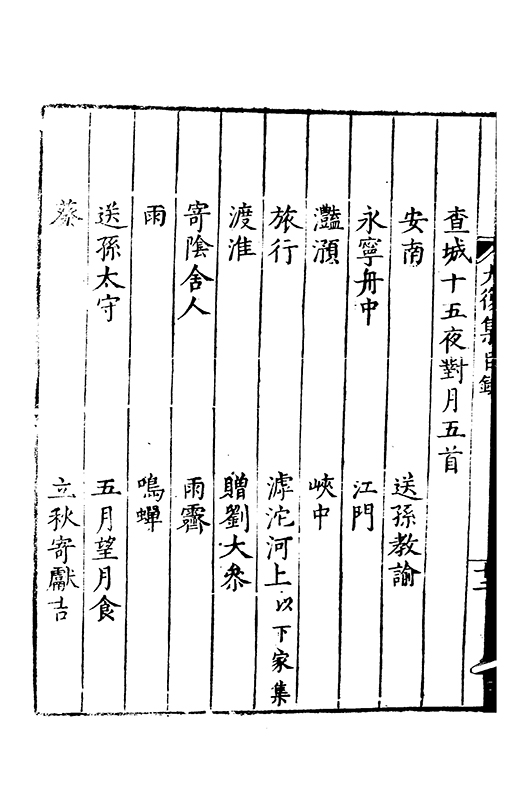 大復集目錄
查城十五夜對月五首
安南 送孫教諭
永寧舟中 江門
灩澦 峽中
旅行 滹沱河上以下家集
渡淮 贈劉大參
寄陰舍人 雨霽
雨 鳴蟬
送孫太守 五月望月食
蔡 立秋寄獻吉